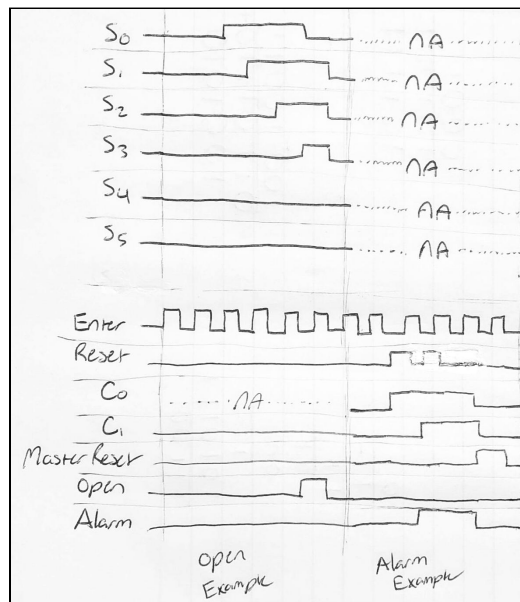 S0
NA
S1
NA
S2
NA
S3
NA
S4
NA
S5
NA
Enter
Reset
C0
NA
C1
Master Reset
Open
Alarm
Open
Example
Alarm
Example